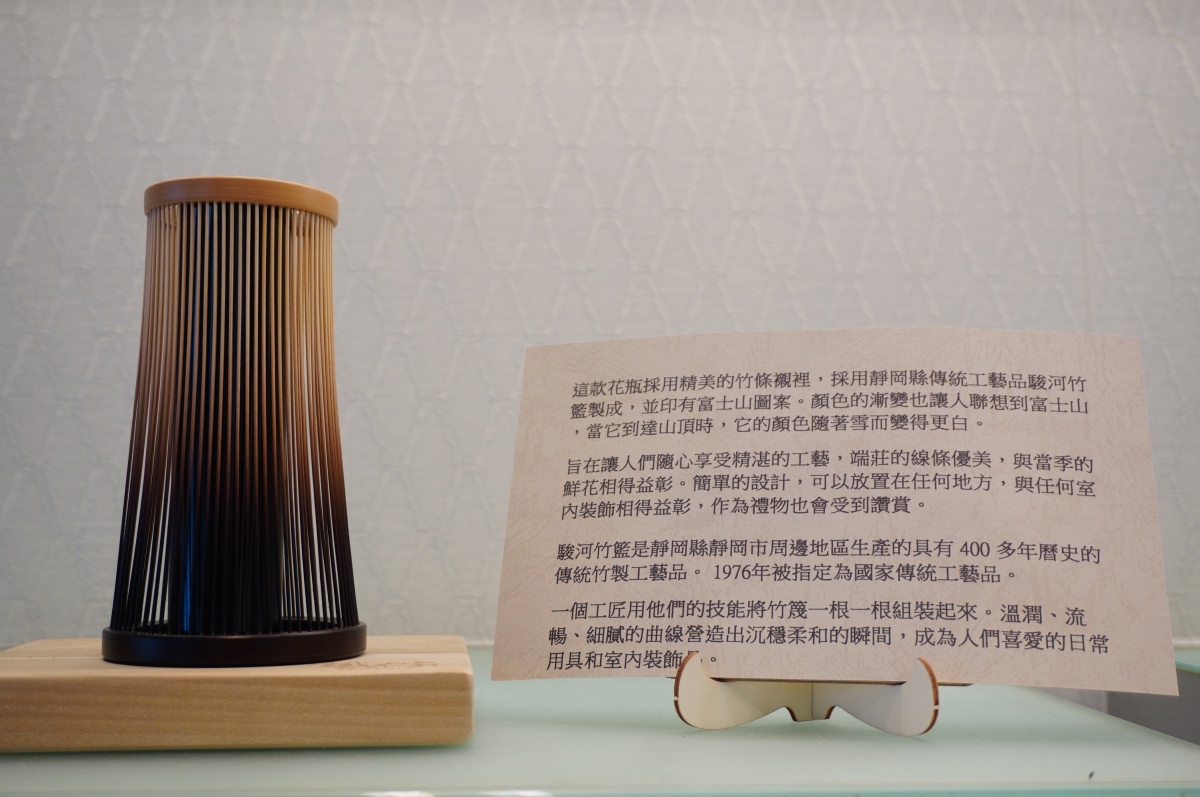 這款花瓶採用精美的竹條襯裡，採用靜岡縣傳統工藝品駿河竹
籃製成，並印有富士山圖案。顏色的漸變也讓人聯想到富士山
，當它到達山頂時，它的顏色隨著雪而變得更白。
旨在讓人們隨心享受精湛的工藝，端莊的線條優美，與當季的
鮮花相得益彰。簡單的設計，可以放置在任何地方，與任何室
內裝飾相得益彰，作為禮物也會受到讚賞。
駿河竹籃是靜岡縣靜岡市周邊地區生產的具有 400 多年曆史的
傳統竹製工藝品。 1976年被指定為國家傳統工藝品。
一個工匠用他們的技能將竹篾一根一根組裝起來。溫潤、流
暢、細膩的曲線營造出沉穩柔和的瞬間，成為人們喜愛的日常
用具和室內裝飾。